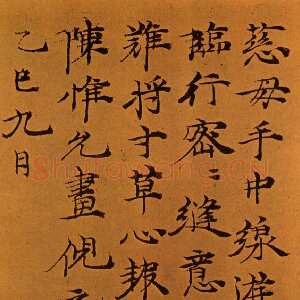 慈母手中線遊
臨行密〻縫意
難将寸草心報
陳惟允畫倪
乙巳九月